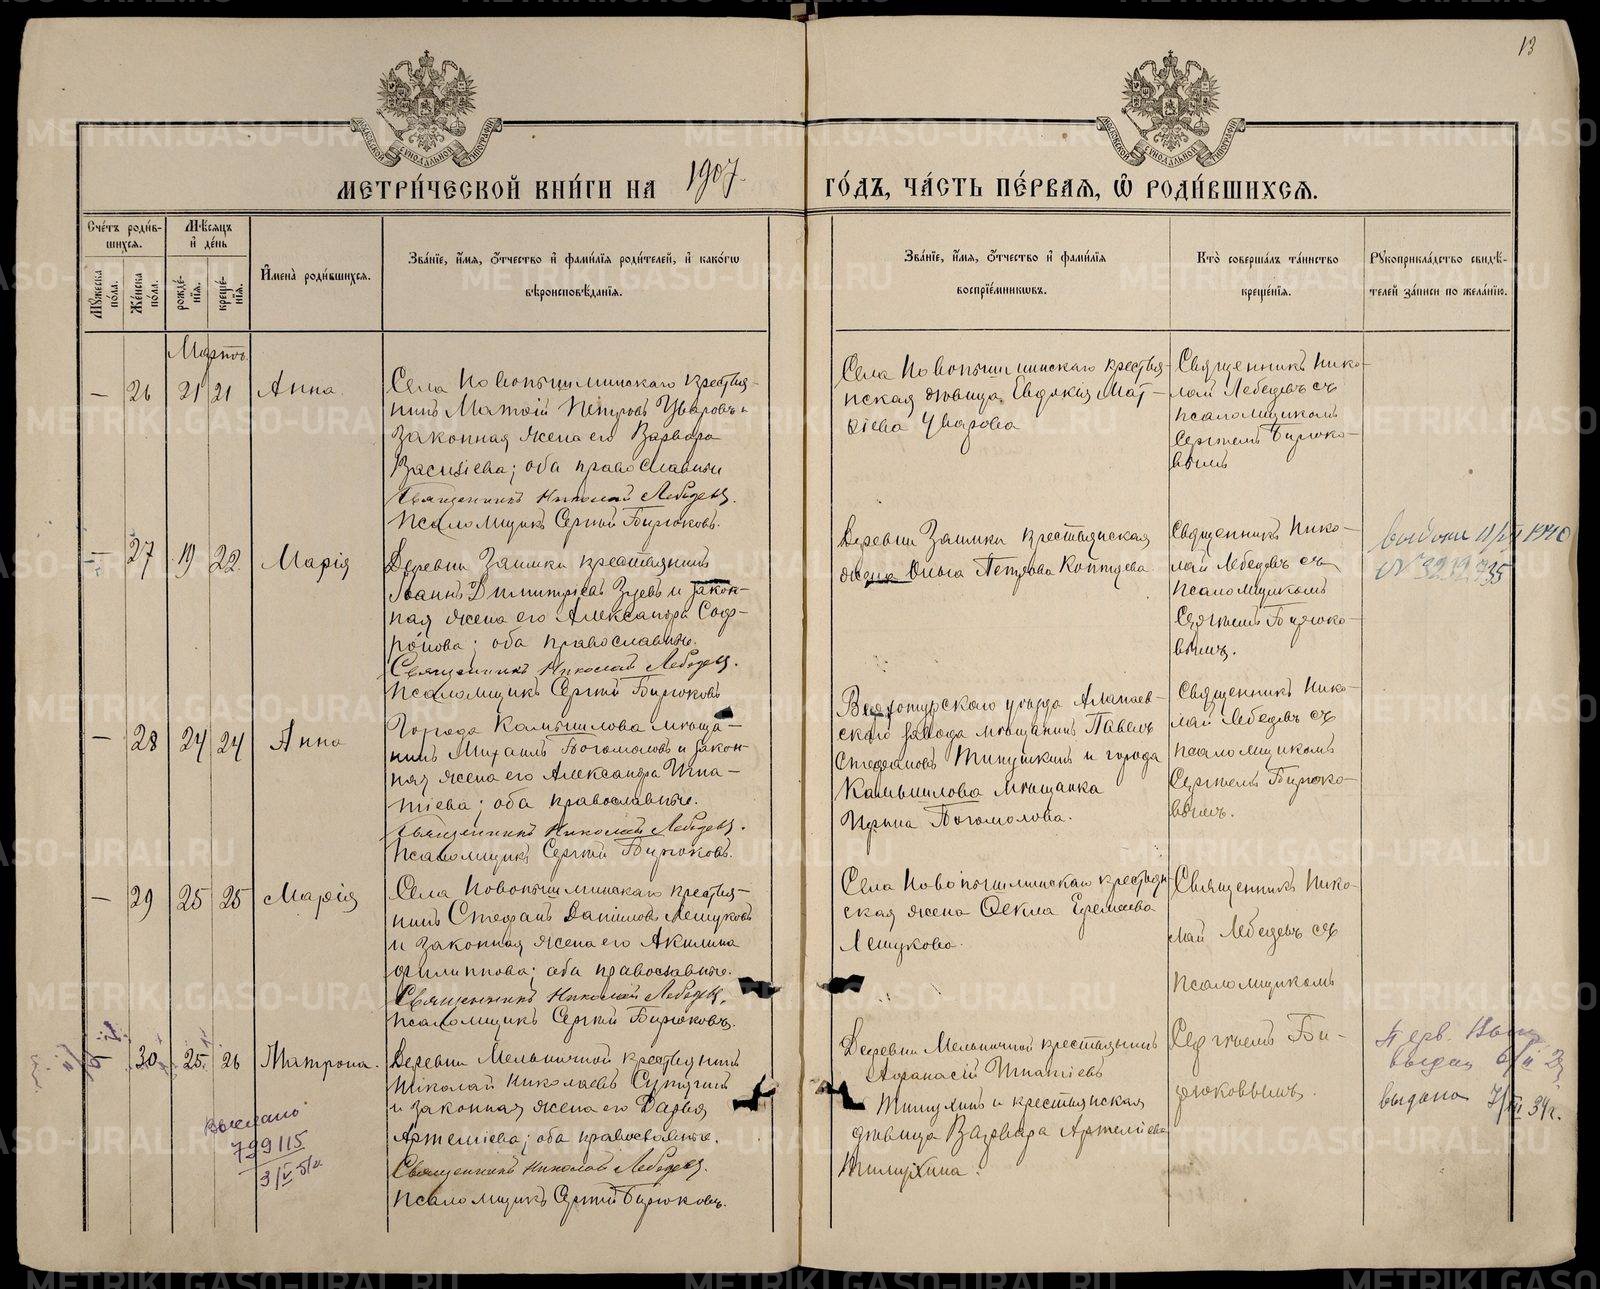 13
МЕТРИ́ЧЕСКОЙ КНИ́ГИ НА 1907.
ГО́ДЪ, ЧА́СТЬ ПЕ́РВАЯ, Ѽ РОДИ́ВШИХСЯ.
Сче́тъ роди́в-
шихся.
Му́жеска по́ла.
Же́нска по́ла.
Мѣ́сяцъ и де́нь
рожде́-
нїя.
креще́-
нїя.
Имена̀ роди́вшихся.
Зва́нїе, и́мя, ѻ́тчество и фами́лїя роди́телей, и како́гѡ
вѣроисповѣ́данїя.
Зва́нїе, и́мя, ѻ́тчество и фами́лїя
воспрїе́мниковъ.
Кто̀ соверша́лъ та́инство
креще́нїя.
Рꙋкоприкла́дство свидѣ́-
телей за́писи по жела́нїю.
Мартъ.
— 26 21 21 Анна
Села Новопышминскаго крестья-
нинъ Матѳій Петровъ Уваровъ и
законная жена его Варвара
Васильева; оба православные
Священникъ Николай Лебедевъ.
Псаломщикъ Сергій Бирюковъ.
Села Новопышминскаго крестья-
нская дѣвица Евдокія Мат-
ѳіева Уварова
Священникъ Нико-
лай Лебедевъ съ
псаломщикомъ
Сергіемъ Бирюко-
вымъ
— 27 19 22. Марія
Деревни Заимки крестьянинъ
Іоаннъ Димитріевъ Зуевъ и закон-
ная жена его Александра Соф-
ронова; оба православные.
Священникъ Николай Лебедевъ.
Псаломщикъ Сергій Бирюковъ
Деревни Заимки крестьянская
жена Ольга Петрова Коптяева
Священникъ Нико-
лай Лебедевъ съ
псаломщикомъ
Сергіемъ Бирюко-
вымъ.
— 28 24 24 Анна
Города Камышлова мѣща-
нинъ Михаилъ Богомоловъ и закон-
ная жена его Александра Игна-
тіева; оба православные.
Священникъ Николай Лебедевъ.
Псаломщикъ Сергій Бирюковъ.
Верхотурскаго уѣзда Алапаев-
скаго завода мѣщанинъ Павелъ
Стефановъ и города
Камышлова мѣщанка
Богомолова.
Священникъ Нико-
лай Лебедевъ съ
псаломщикомъ
Сергіемъ Бирюко-
вымъ.
— 29 25 25 Марія
Села Новопышминскаго крестья-
нинъ Стефанъ Даніиловъ Лешуковъ
и законная жена его Акилина
Филиппова; оба православные.
Священникъ Николай Лебедевъ.
Псаломщикъ Сергій Бирюковъ.
Села Новопышминскаго крестьян-
ская жена Ѳекла Еремѣева
Лешукова.
Священникъ Нико-
лай Лебедевъ съ
псаломщикомъ
Сергіемъ Би-
рюковымъ.
— 30 25 26 Матрона.
Деревни Мельничной крестьянинъ
Николай Николаевъ
и законная жена его Дарья
Артеміева; оба православные.
Священникъ Николай Лебедевъ.
Псаломщикъ Сергій Бирюковъ.
Деревни Мельничной крестьянинъ
Аѳанасій Игнатіевъ
и крестьянская
дѣвица Варвара Артеміева
выдано
799115
выдана